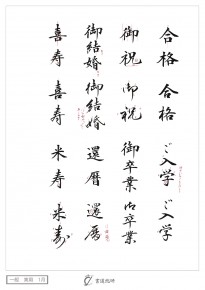 合格 合格 ご入学 ご入学
御祝 御祝 御卒業 御卒業
御結婚 御結婚 還暦 還暦
喜寿 喜寿 米寿 米寿
一般 実用 1月